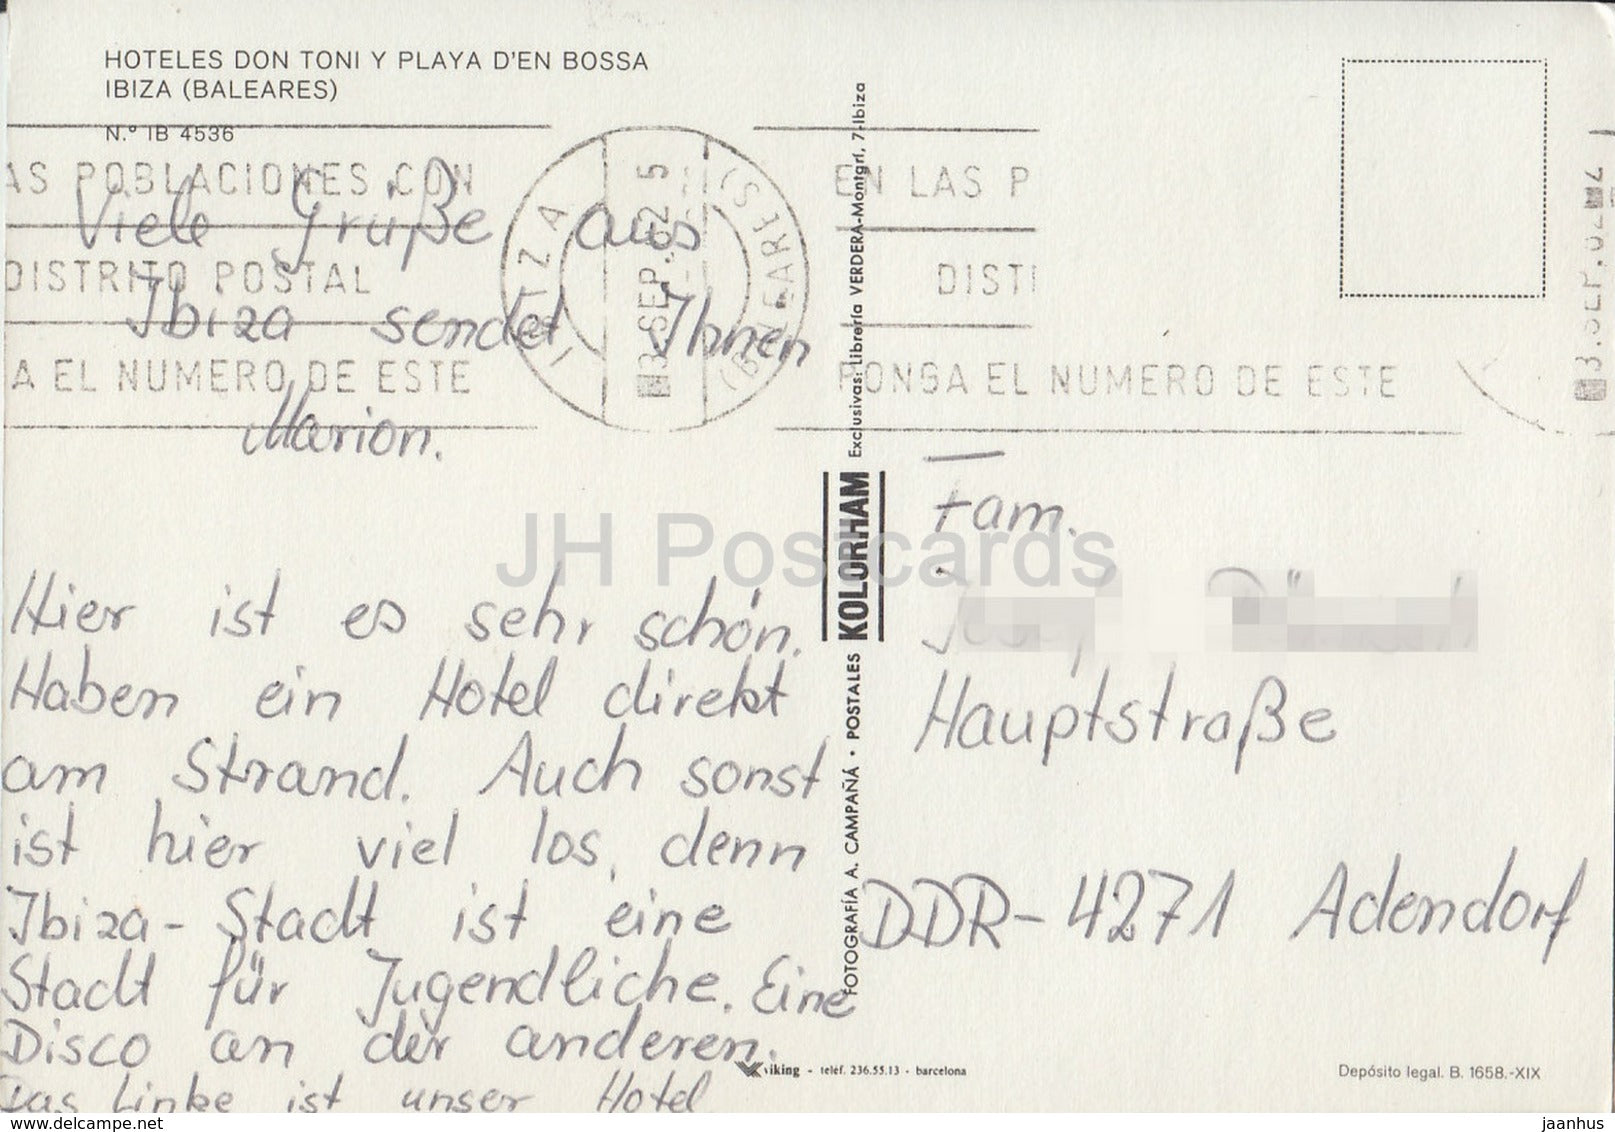 HOTELES DON TONI Y PLAYA D'EN BOSSA
IBIZA (BALEARES)
N.º IB 4536
AS POBLACIONES CON
DISTRITO POSTAL
A EL NUMERO DE ESTE
IBIZA
(BALEARES)
3.SEP.82
EN LAS P
DISTI
PONGA EL NUMERO DE ESTE
3.SEP.82
Viele Grüße aus
Ibiza sendet Ihnen
Marion.
Hier ist es sehr schön.
Haben ein Hotel direkt
am Strand. Auch sonst
ist hier viel los, denn
Ibiza-Stadt ist eine
Stadt für Jugendliche. Eine
Disco an der anderen.
Das Linke ist unser Hotel
FOTOGRAFÍA A. CAMPAÑÁ · POSTALES KOLORHAM Exclusivas: Librería VERDERA-Montgrí, 7-Ibiza
Fam.
Hauptstraße
DDR-4271 Adendorf
viking - teléf. 236.55.13 - barcelona
Depósito legal. B. 1658.-XIX
JH Postcards
delcampe.net
jaanhus